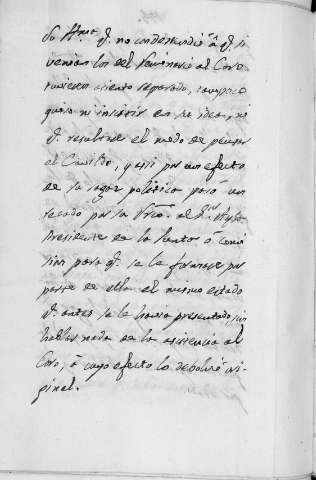 So Ilmª. q. no condesendió â q. si
venian los del Seminario al Coro
tuviesen asiento separado, tampoco
quiso ni insistir en su idea, ni
q. resultase el modo de pensar
el Cavildo, y assi por un efecto
de su sagaz politica pasó un
recado por la del
Presidente de la Junta ô comi
sion para q. se le formase por
parte de ella el mismo estado
q. antes se le havia presentado, sin
hablar nada de la asistencia al
Coro, â cuyo efecto lo debolvió ori-
ginal.